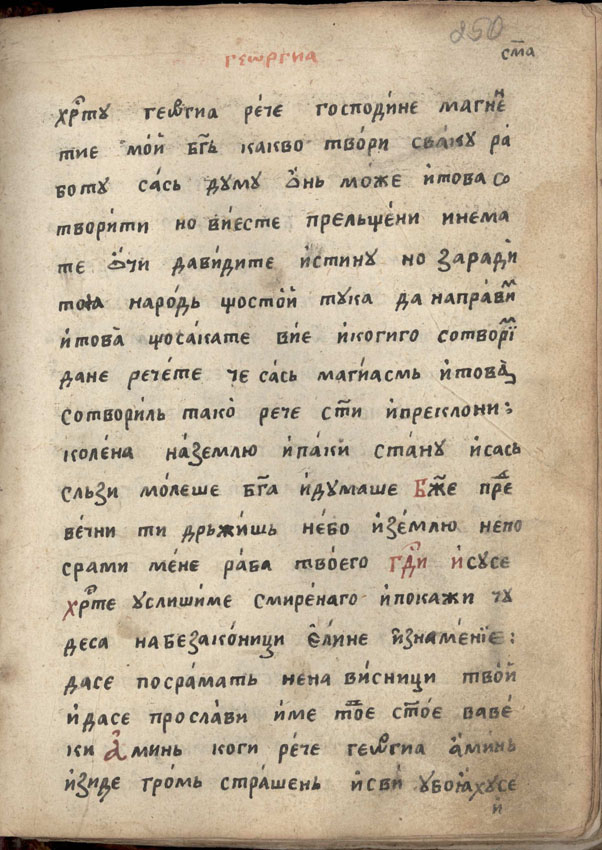 250
см҃а
геѡргиа
хрⷭ҇ту геѡ́гиа ре́че господи́не магнеⷩ
тие мо́й бг҃ь какво тво́ри сва́ку ра́
боту са́сь ду́му ѻ́нь мо́же и́това со
твори́ти но ви́есте прельще́ни инема
те ѻ́чи дави́дите и́стину но зарадѝ
тоꙗ наро́дь щосто́й тука да направиⷨ
и́това̀ щоса́кате ви́е и́когиго сотвориⷨ
дане рече́те че са́сь маги́асмь и́това̀
сотвори́ль тако̀ рече ст҃и и́преклони:
коле́на на́землю и́па́ки ста́ну и́сась
сльзи мо́леше бг҃а и́думаше Бж҃е преⷣ
ве́чни ти дрьжи́шь не́бо и́зе́млю непо
срами ме́не ра́ба тво́его гдⷭ҇и и́сусе
хрⷭ҇те услиши́ме смире́наго и́покажи чу
деса набезако́ници е́лине и́знаме́нїе:
дасе посра́мать нена ви́сници тво́й
и́дасе просла́ви и́ме тво҃е ст҃о́е ваве́
ки А́минь коги ре́че геѡ́гиа а́минь
и́зиде гро́мь стра́шень и́сви́ убоꙗ́хусе
и